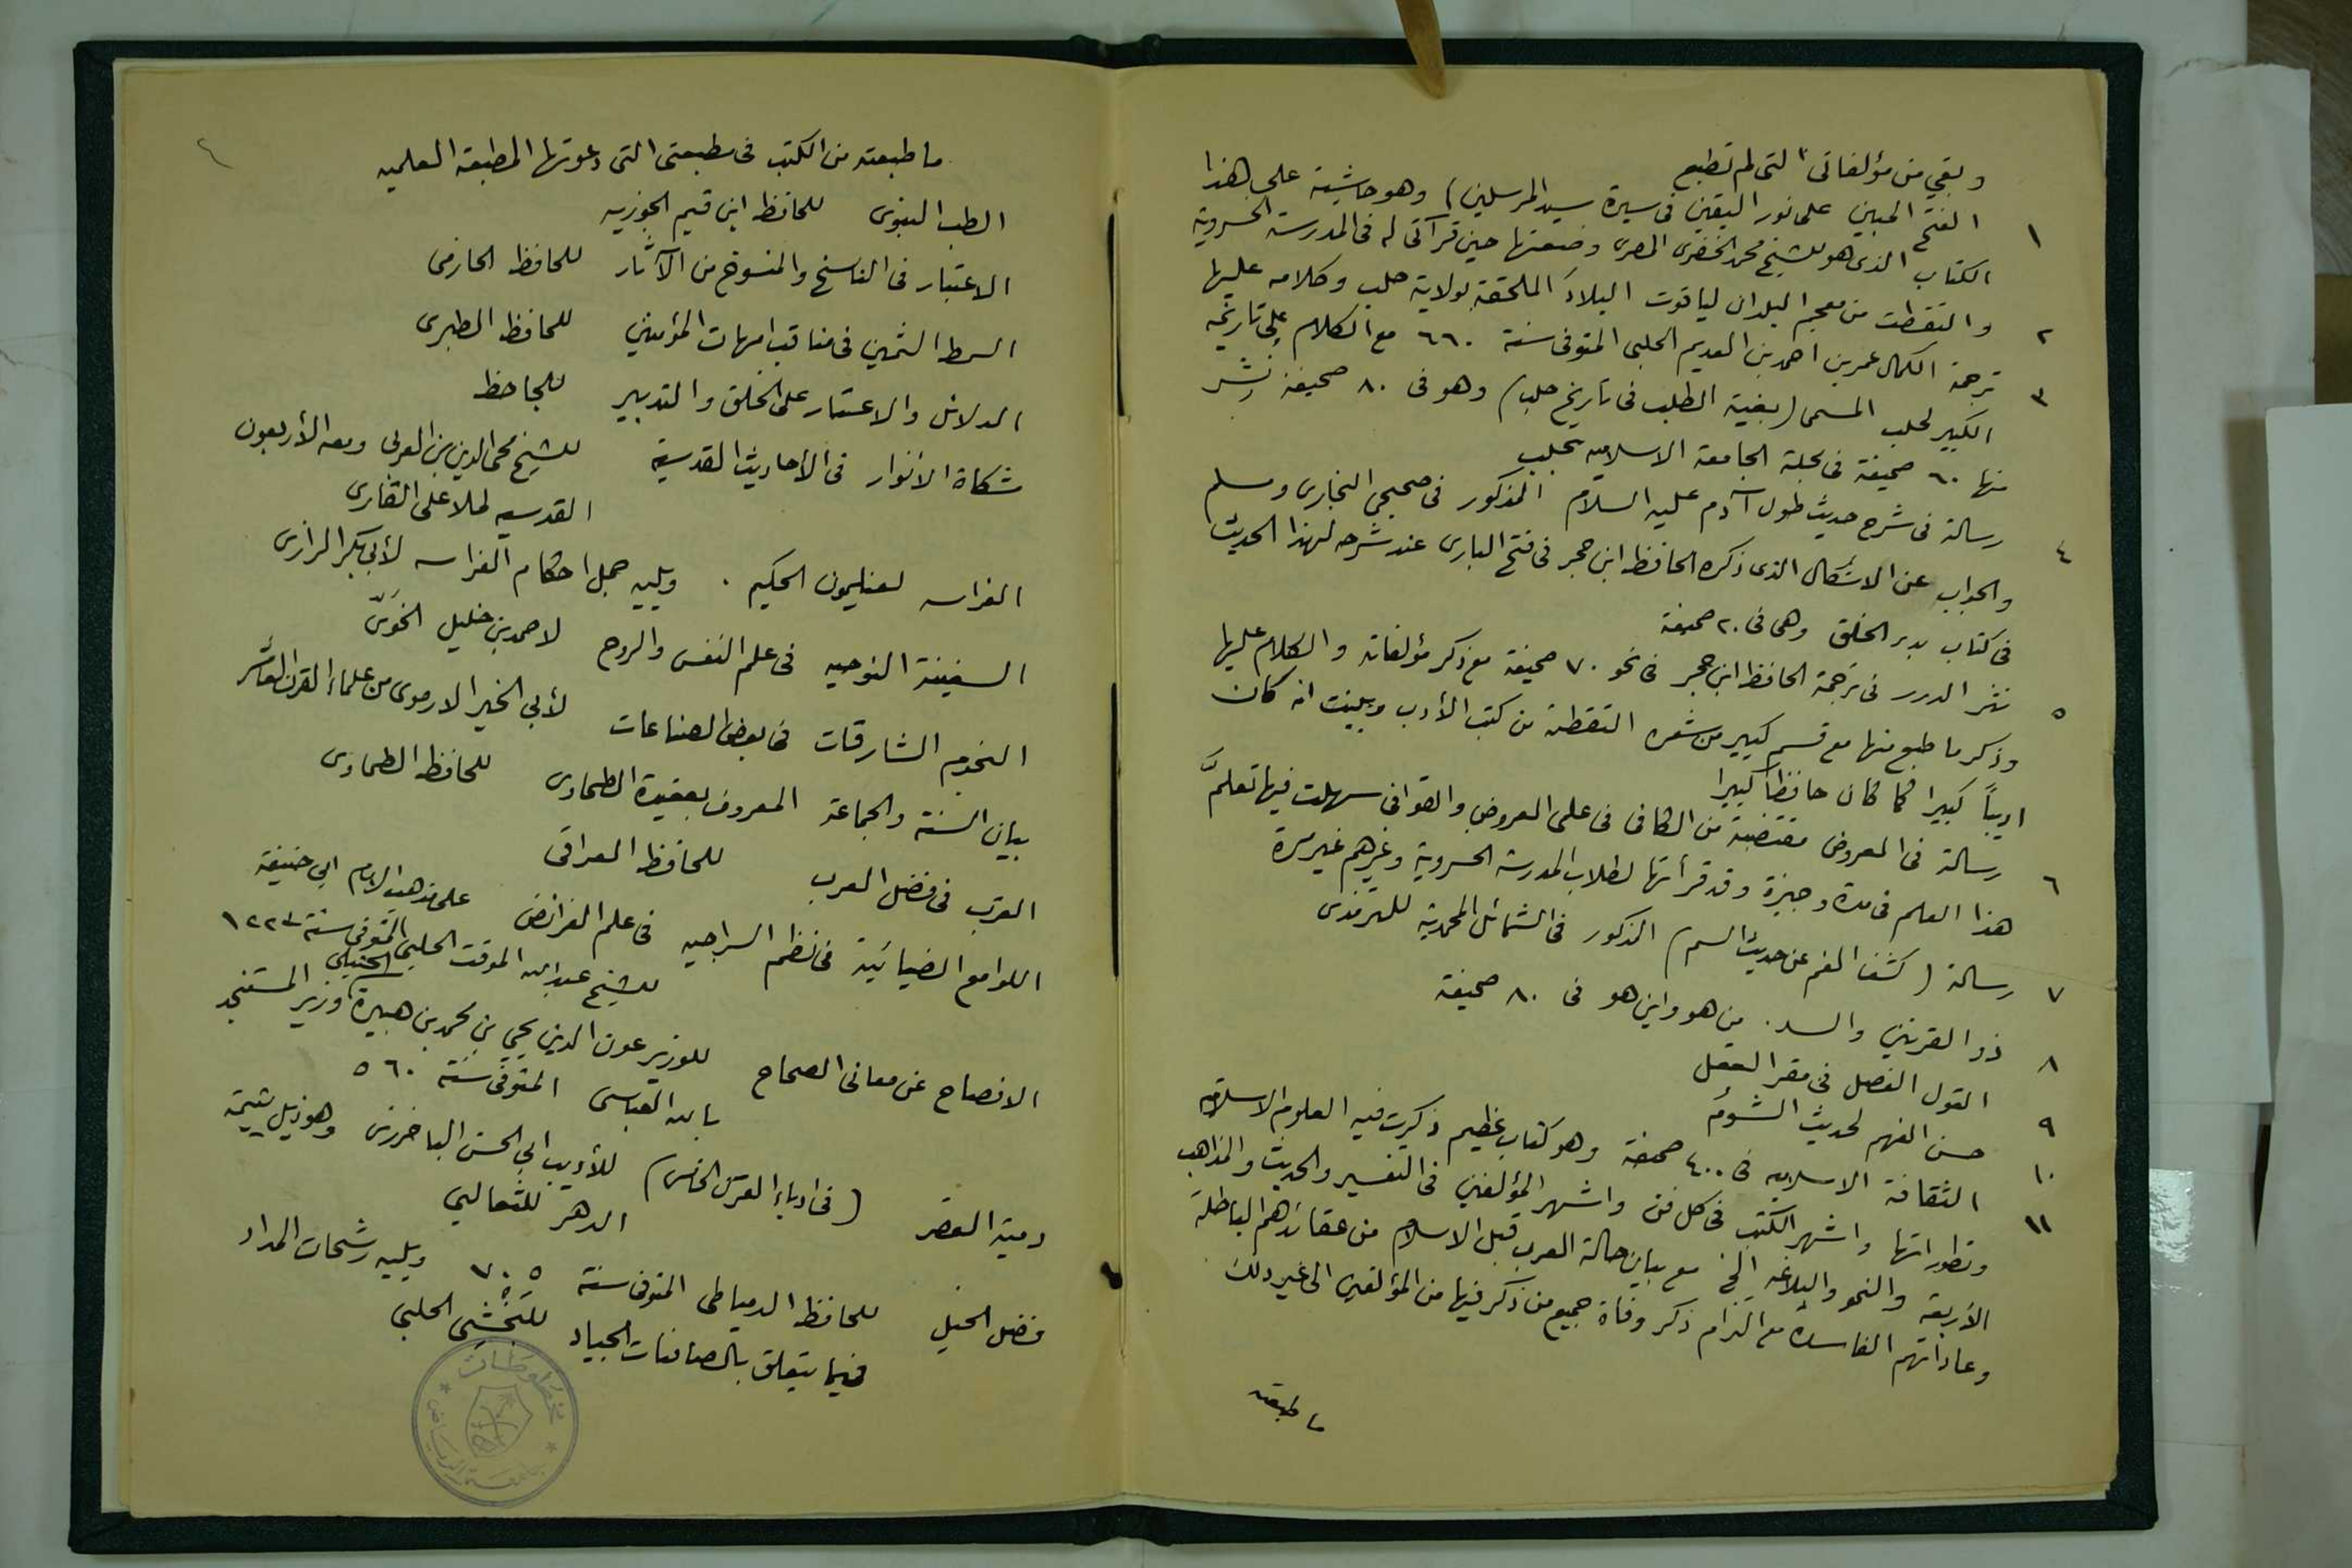 وبقي من مؤلفاتى التى لم تطبع
١ الفتح المبين على نور اليقين فى سيرة سيد المرسلين) وهو حاشية على هذا
الكتاب الذى هو للشيخ محمد الخضرى المصرى وضعتها حين قرآتى له فى المدرسة الخسروية
٢ والتقطت من معجم البلدان لياقوت البلاد الملحقة بولاية حلب وكلامه عليها
٣ ترجمة الكمال عمر بن احمد بن العديم الحلبى المتوفى سنة ٦٦٠ مع الكلام على تاريخه
الكبير لحلب المسمى (بغية الطلب فى تاريخ حلب) وهو فى ٨٠ صحيفة نشر
منها ٦٠ صحيفة فى مجلة الجامعة الاسلاميه بحلب
٤ رسالة فى شرح حديث طول آدم عليه السلام المذكور فى صحيحى البخارى ومسلم
والجواب عن الاشكال الذى ذكره الحافظ ابن حجر فى فتح البارى عند شرحه لهذا الحديث
فى كتاب بدء الخلق وهى فى ٢٠ صحيفة
٥ نثر الدرر فى ترجمة الحافظ ابن حجر فى نحو ٧٠ صحيفة مع ذكر مؤلفاته والكلام عليها
وذكر ما طبع منها مع قسم كبير من شعره التقطته من كتب الأدب وبينت انه كان
اديباً كبيرا كما كان حافظاً كبيرا
٦ رسالة فى العروض مقتضبة من الكافى فى على العروض والقوافى سهلت فيها تعلمَّ
هذا العلم فى مدة وجيزة وقد قرأتها لطلاب المدرسة الخسروية وغيرهم غير مرة
٧ رسالة (كشف الغم عن حديث السم) المذكور فى الشمائل المحمدية للترمذى
٨ ذو القرنين والسد. من هو واين هو فى ٨٠ صحيفة
٩ القول الفصل فى مقر العقل
١٠ حسن الفهم لحديث الشوم
١١ الثقافة الاسلاميه فى ٤٠٠ صحيفة وهو كتاب عظيم ذكرت فيه العلوم الاسلاميه
وتطوراتها واشهر الكتب فى كل فن واشهر المؤلفين فى التفسير والحديث والمذاهب
الأربعة والنحو والبلاغه الخ مع بيان حالة العرب قبل الاسلام من عقائدهم الباطلة
وعاداتهم الفاسدة مع التزام ذكر وفاة جميع من ذكر فيها من المؤلفين الى غير ذلك
ما طبعته
٤
ما طبعته من الكتب فى مطبعتى التى دعوتها المطبعة العلميه
الطب النبوى للحافظ ابن قيم الجوزيه
الاعتبار فى الناسخ والمنسوخ من الآثار للحافظ الحازمى
السمط الثمين فى مناقب امهات المؤمنين للحافظ الطبرى
الدلائل والاعتبار على الخلق والتدبير للجاحظ
مشكاة الانوار فى الأحاديث القدسية للشيخ محى الدين بن العربى ومعه الأربعون
القدسيه لملا على القارى
الفراسه لفليمون الحكيم . ويليه جمل احكام الفراسه لأبى بكر الرازى
السفينة النوحيه فى علم النفس والروح لاحمد بن خليل الخوَىّ
النجوم الشارقات فى بعض الصناعات لأبي الخير الارموى من علماء القرن العاشر
بيان السنة والجماعة المعروف بعقيدة الطحاوى للحافظ الطحاوى
القرَب فى فضل العرب للحافظ العراقى
اللوامع الضيائية فى نظم السراجيه فى علم الفرائض على مذهب الامام ابي حنيفة
للشيخ عبد الله الموقت الحلبي المتوفى سنة ١٢٢٣
الافصاح عن معانى الصحاح للوزير عون الدين يحيى بن محمد بن هبيرة الحنبلي وزير المستنجد
بالله العباسى المتوفى سنة ٥٦٠
دمية القصر (فى ادباء القرن الخامس) للأديب ابي الحسن الباخرزى وهو ذيل يتيمة
الدهر للثعالبي
فضل الخيل للحافظ الدمياطى المتوفى سنة ٧٠٥ ويليه رشحات المداد
فيما يتعلق بالصافنات الجياد للبخشى الحلبي
مخطوطات
جامعة الرياض